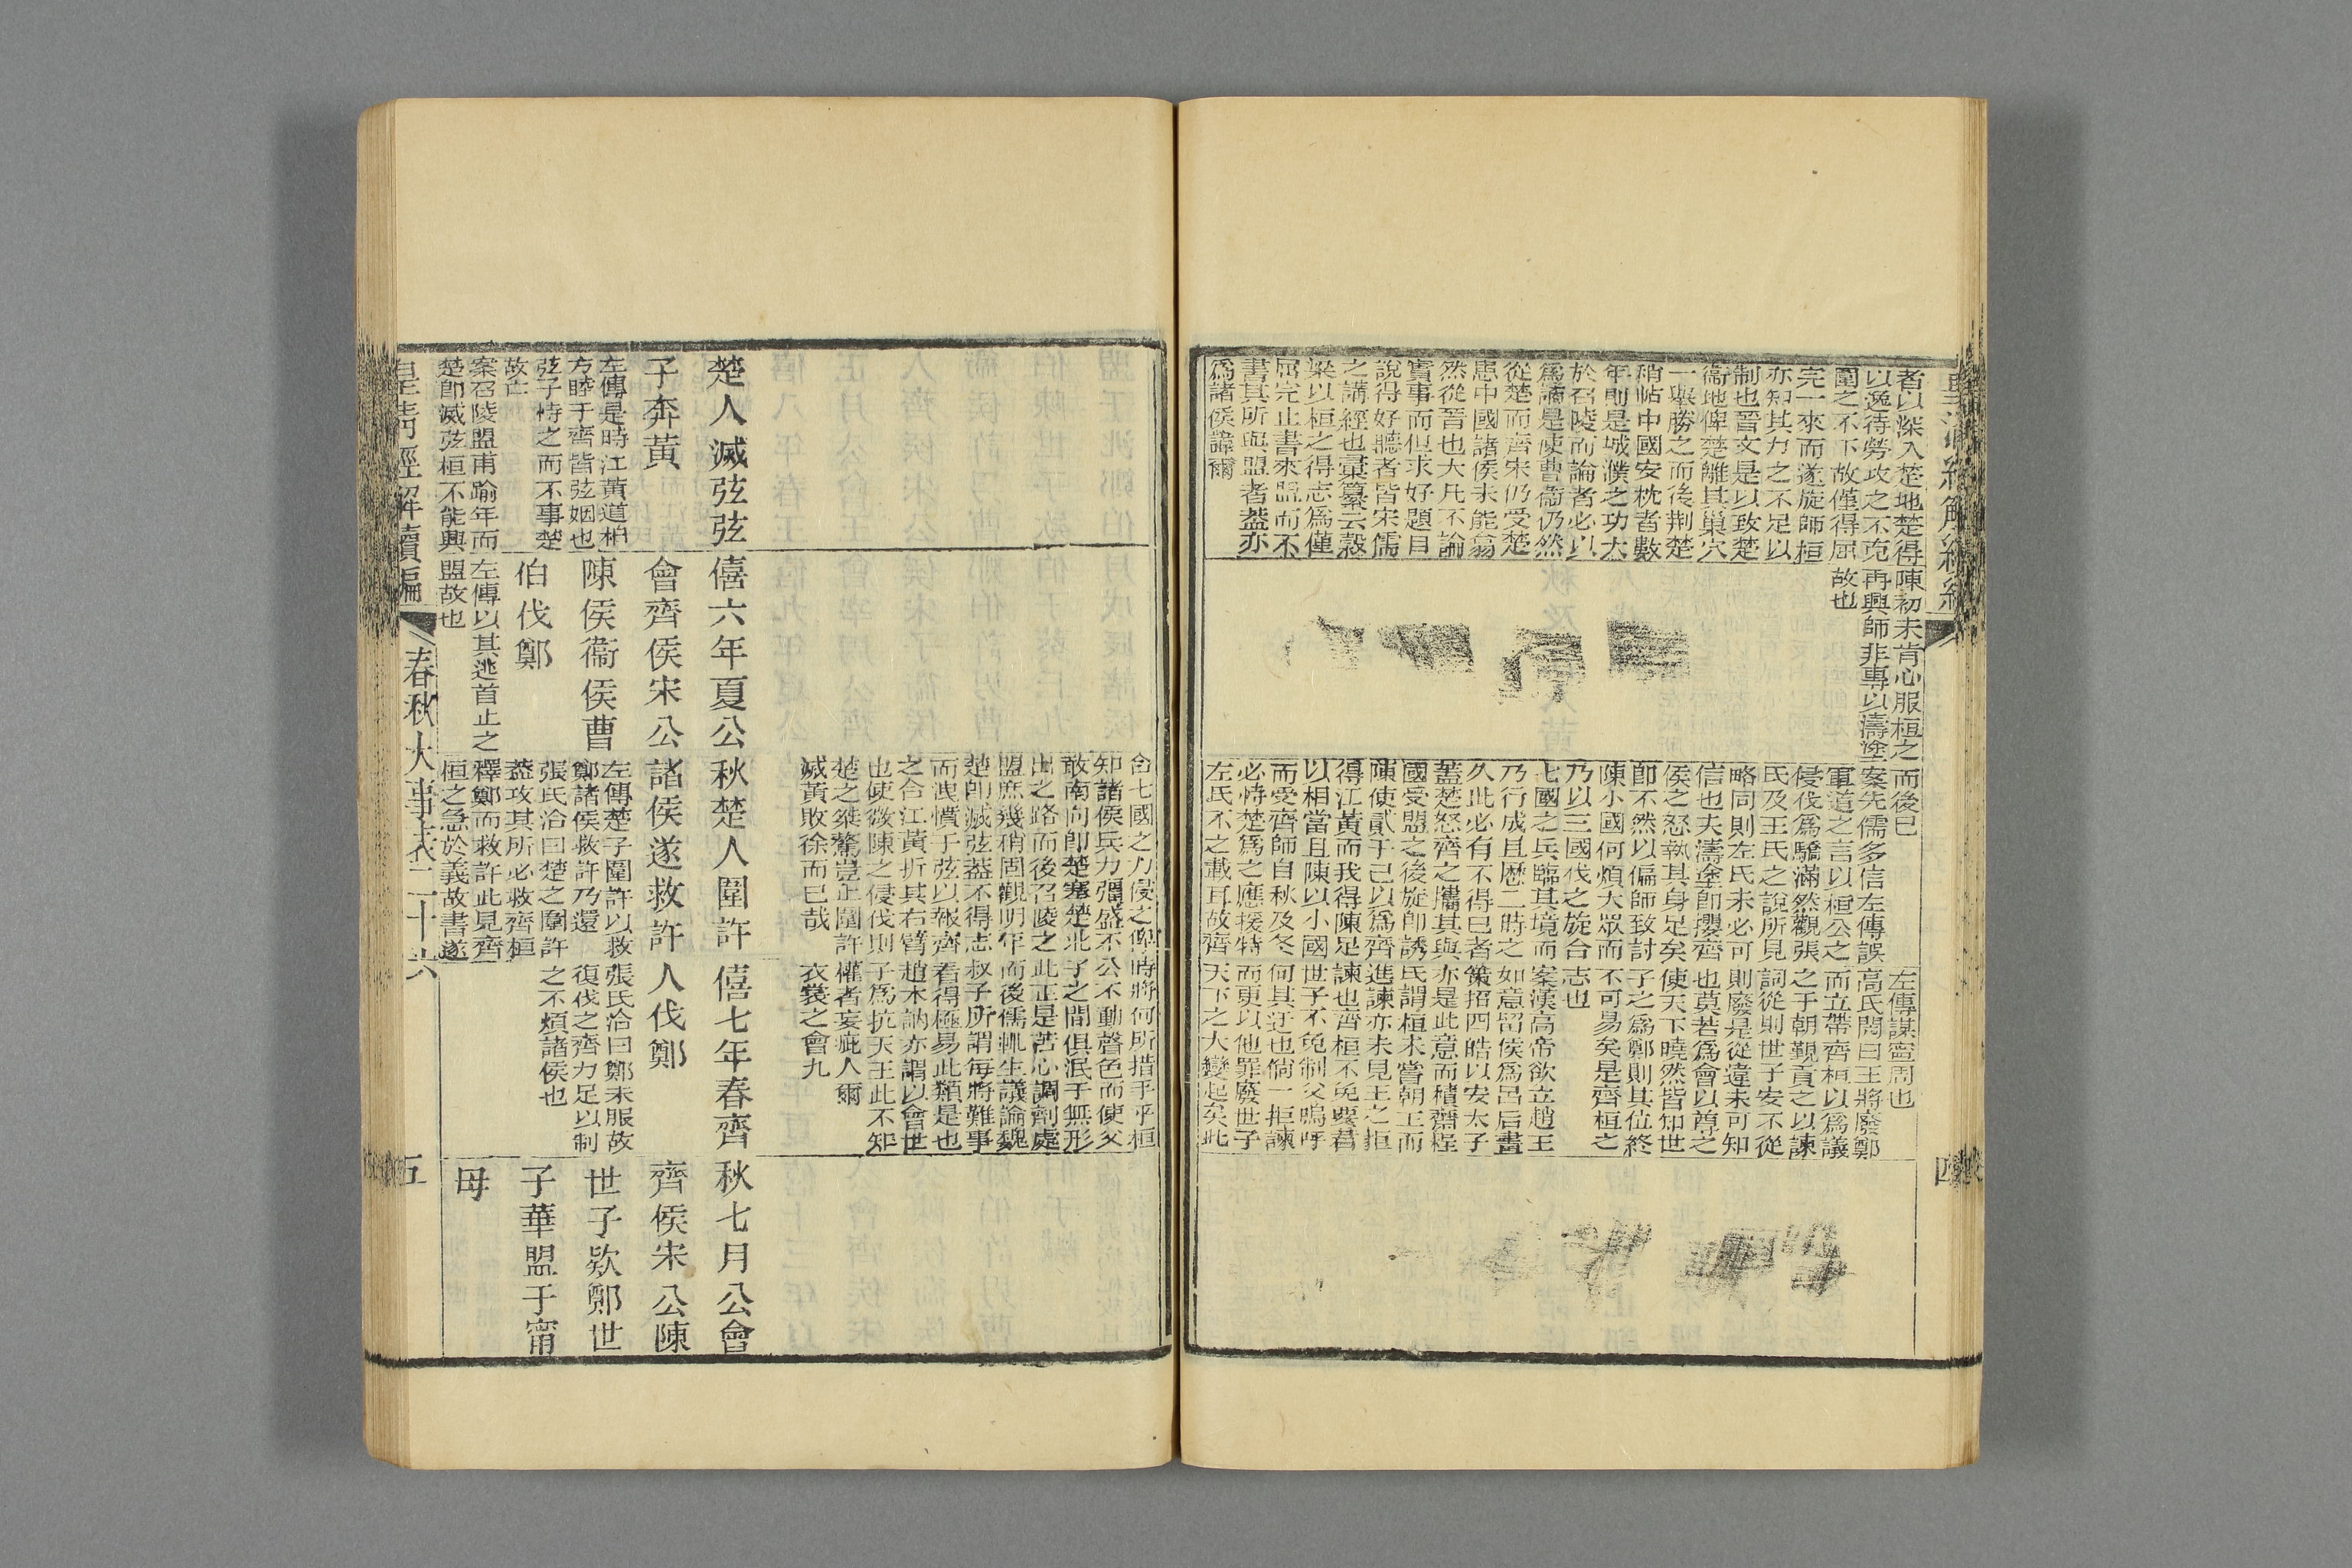 者以深入楚地楚得
以逸待勞攻之不克
圍之不下故僅得屈
完一來而遂旋師桓
亦知其力之不足以
制也晉文是以致楚
衞地俾楚離其巢穴
一舉勝之而後荆楚
稍帖中國安枕者數
年則是城濮之功大
於召陵而論者必以
爲譎是使曹衞仍然
從楚而齊宋仍受楚
患中國諸侯未能翕
然從晉也大凡不論
實事而但求好題目
說得好聽者皆宋儒
之講經也彙纂云穀
梁以桓之得志爲僅
屈完止書來盟而不
書其所與盟者蓋亦
爲諸侯諱爾
陳初未肯心服桓之
再興師非專以濤塗
故也
而後已
案先儒多信左傳誤
軍道之言以桓公之
侵伐爲驕滿然觀張
氏及王氏之說所見
略同則左氏未必可
信也夫濤塗卽攖齊
侯之怒執其身足矣
卽不然以偏師致討
陳小國何煩大眾而
乃以三國伐之旋合
七國之兵臨其境而
乃行成且歷二時之
久此必有不得已者
蓋楚怒齊之攜其與
國受盟之後旋卽誘
陳使貳于己以爲齊
得江黃而我得陳足
以相當且陳以小國
而受齊師自秋及冬
必恃楚爲之應援特
左氏不之載耳故齊
左傳謀寧周也
高氏閌曰王將廢鄭
而立帶齊桓以爲議
之于朝覲貢之以諫
詞從則世子安不從
則廢是從違未可知
也莫若爲會以尊之
使天下曉然皆知世
子之爲鄭則其位終
不可易矣是齊桓之
志也
案漢高帝欲立趙王
如意留侯爲呂后畫
策招四皓以安太子
亦是此意而穡齋桎
氏謂桓未嘗朝王而
進諫亦未見王之拒
諫也齊桓不免要君
世子不免制父嗚呼
何其迂也倘一拒諫
而更以他罪廢世子
天下之大變起矣此
四
合七國之力侵之俾
知諸侯兵力彌盛不
敢南向卽楚塞楚北
出之路而後召陵之
盟庶幾稍固觀明年
楚卽滅弦蓋不得志
而洩憤于弦以報齊
之合江黃折其右臂
也使微陳之侵伐則
楚之桀驁豈止圍許
滅黃敗徐而已哉
時將何所措手乎桓
公不動聲色而使父
子之間俱泯于無形
此正是苦心調劑處
而後儒輒生議論魏
叔子所謂每將難事
看得極易此類是也
趙木訥亦謂以會世
子爲抗天王此不知
權者妄疵人爾
衣裳之會九
楚人滅弦弦
子奔黃
左傳是時江黃道柏
方睦于齊皆弦姻也
弦子恃之而不事楚
故亡
案召陵盟甫踰年而
楚卽滅弦桓不能興
僖六年夏公
會齊侯宋公
陳侯衞侯曹
伯伐鄭
左傳以其逃首止之
盟故也
秋楚人圍許
諸侯遂救許
左傳楚子圍許以救
鄭諸侯救許乃還
張氏洽曰楚之圍許
蓋攻其所必救齊桓
釋鄭而救許此見齊
桓之急於義故書遂
僖七年春齊
人伐鄭
張氏洽曰鄭未服故
復伐之齊力足以制
之不煩諸侯也
秋七月公會
齊侯宋公陳
世子欵鄭世
子華盟于甯
母
皇淸經解續編
春秋大事表二十六
五